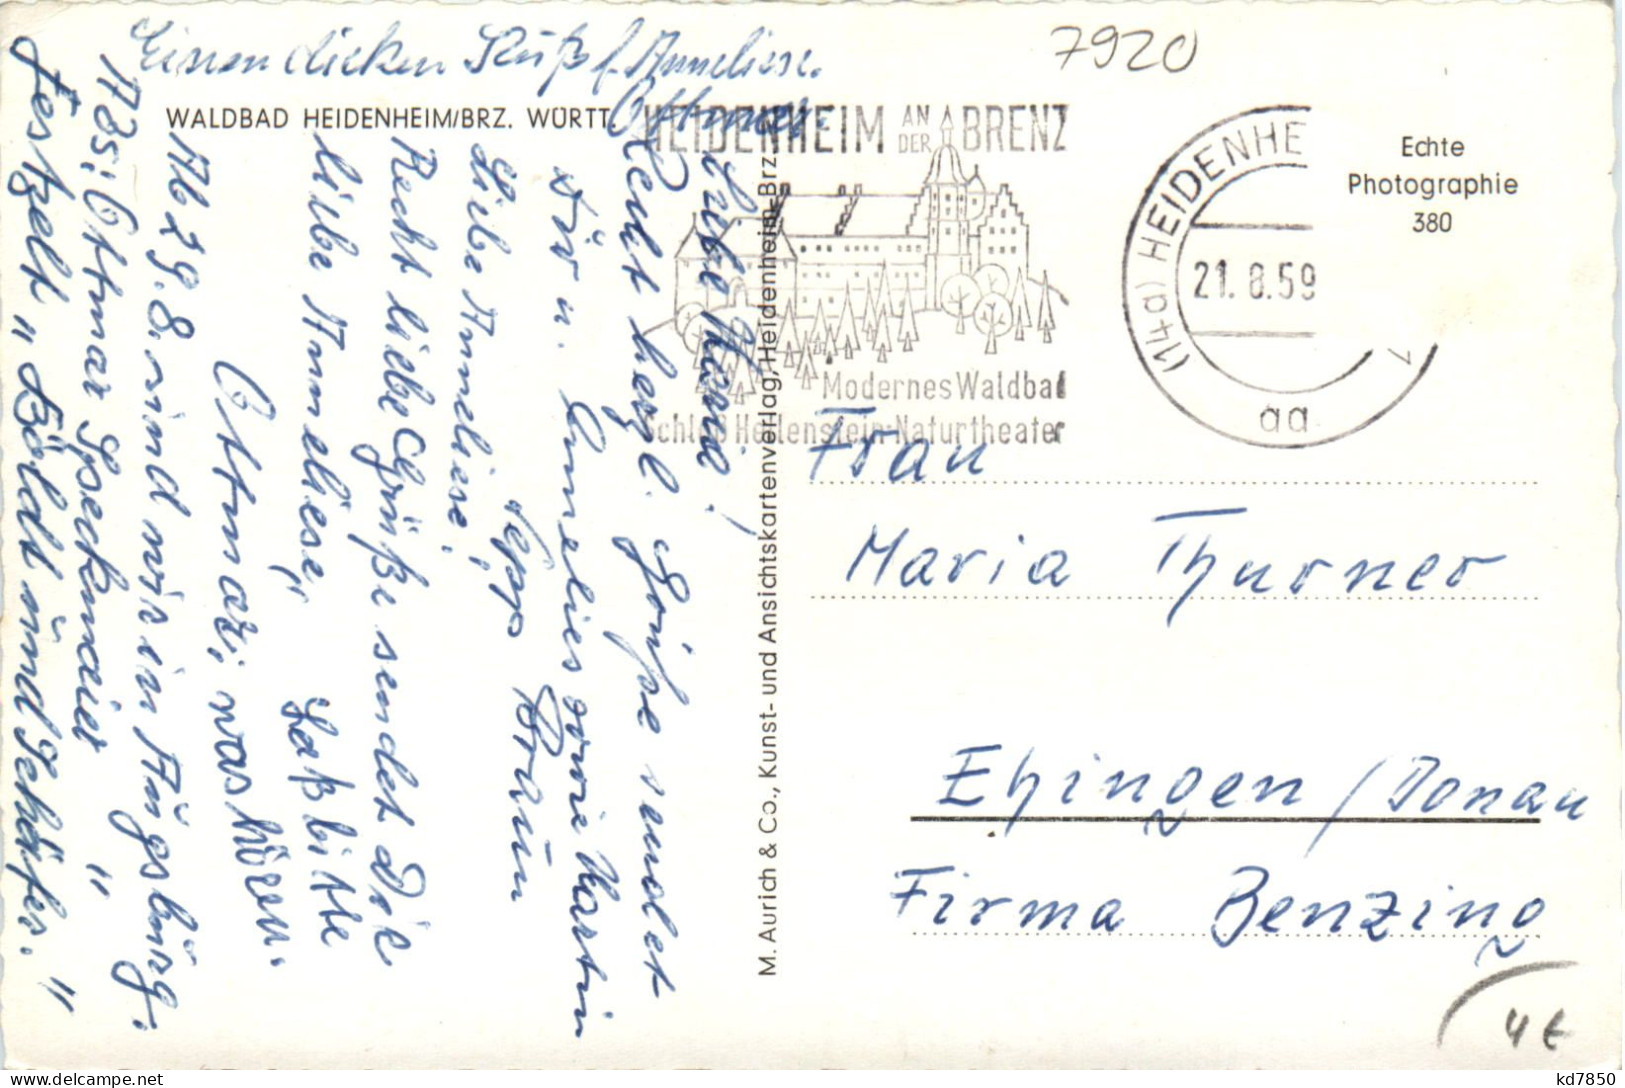 Einen dicken Kuß f. Anneliese.
Ottmar.
7920
WALDBAD HEIDENHEIM/BRZ. WÜRTT.
HEIDENHEIM AN DER BRENZ
Modernes Waldbad
Schloß Hellenstein-Naturtheater
(14a) HEIDENHE
21.8.59
aa
Echte
Photographie
380
M. Aurich & Co., Kunst- und Ansichtskartenverlag, Heidenheim-Brz.
Liebe Maria!
Recht herzl. Grüße sendet
Dir u. Annelies sowie Martin
Sepp Braun
Liebe Anneliese!
Recht liebe Grüße sendet Dir
liebe Anneliese,
Ottmar. Laß bitte
was hören.
Ab 29.8. sind wir in Augsburg.
Ads: Ottmar
Festzelt "Böldt und Schäfer."
Frau
Maria Thurner
Ehingen / Donau
Firma Benzing
4 €
kd7850